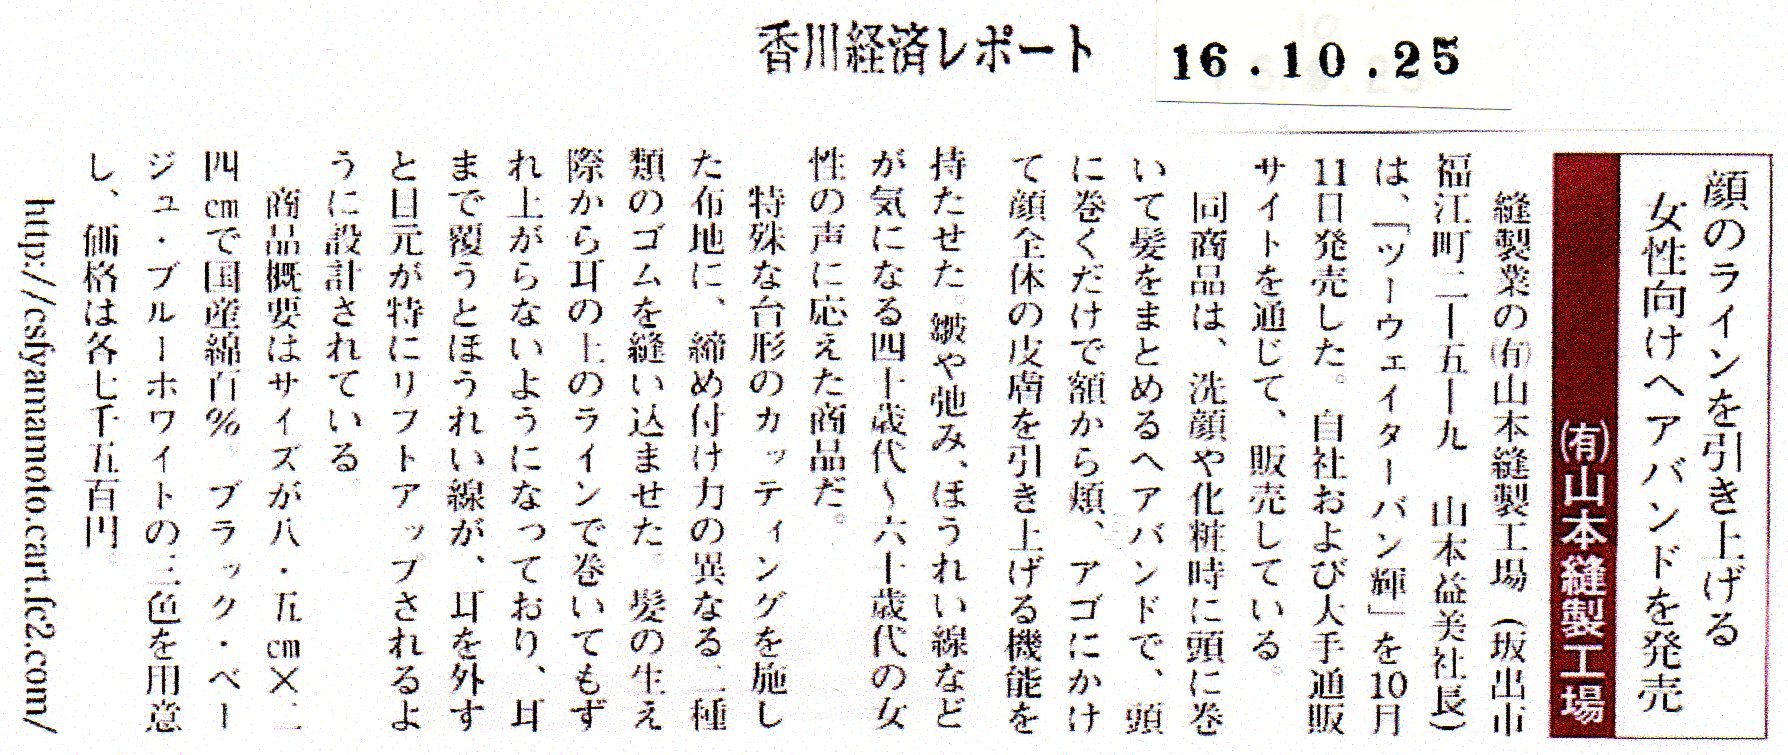 香川経済レポート
16.10.25
顔のラインを引き上げる
女性向けヘアバンドを発売
㈲山本縫製工場
縫製業の㈲山本縫製工場(坂出市
福江町二ー五ー九　山本益美社長)
は、「ツーウェイターバン輝」を10月
11日発売した。自社および大手通販
サイトを通じて、販売している。
同商品は、洗顔や化粧時に頭に巻
いて髪をまとめるヘアバンドで、頭
に巻くだけで額から頬、アゴにかけ
て顔全体の皮膚を引き上げる機能を
持たせた。皺や弛み、ほうれい線など
が気になる四十歳代〜六十歳代の女
性の声に応えた商品だ。
特殊な台形のカッティングを施し
た布地に、締め付け力の異なる二種
類のゴムを縫い込ませた。髪の生え
際から耳の上のラインで巻いてもず
れ上がらないようになっており、耳
まで覆うとほうれい線が、耳を外す
と目元が特にリフトアップされるよ
うに設計されている。
商品概要はサイズが八・五㎝×二
四㎝で国産綿百%。ブラック・ベー
ジュ・ブルーホワイトの三色を用意
し、価格は各七千五百円。
http://csfyamamoto.cart.fc2.com/